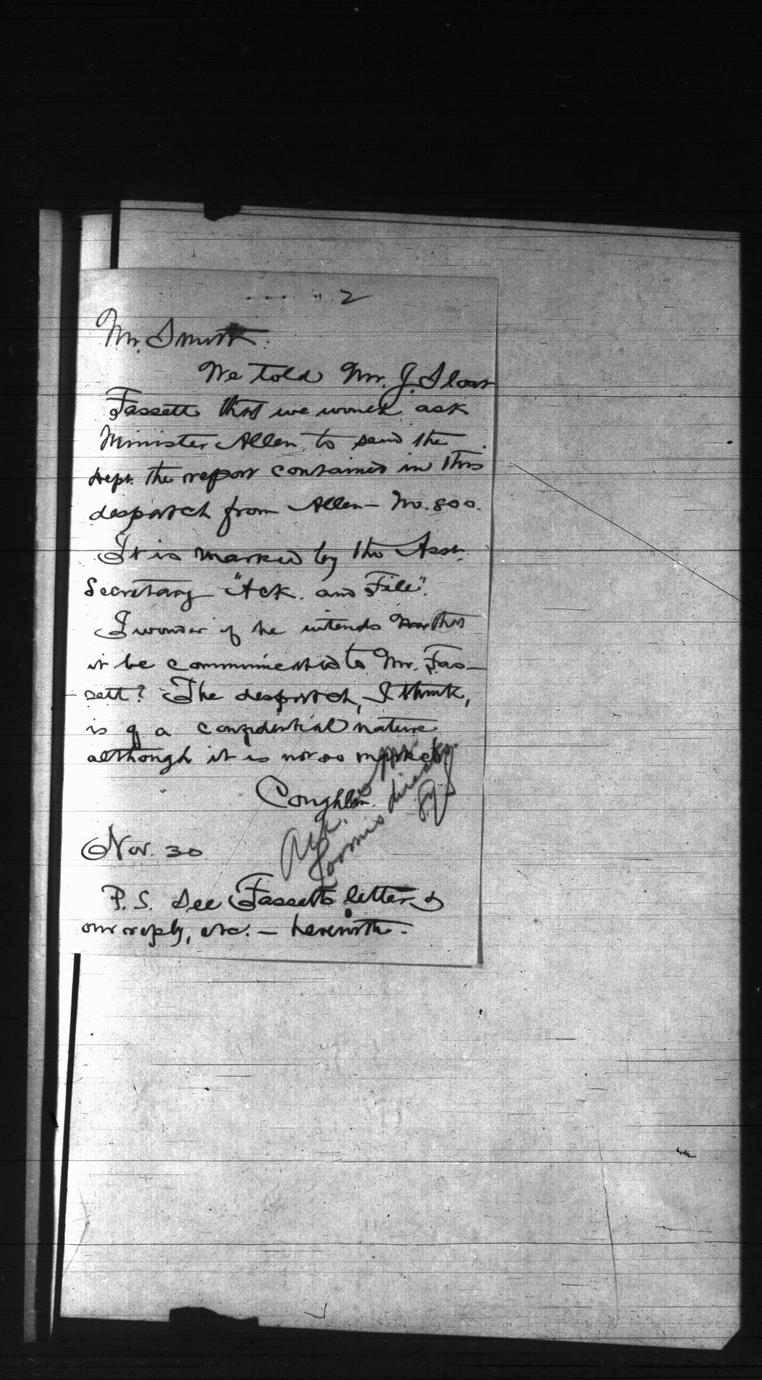 2
Mr. Smith.
We told Mr. J. Sloat
Fassett that we would ask
Minister Allen to send the
dept. the report contained in this
despatch from Allen - No. 800.
It is marked by the Asst.
Secretary "Ack. and File".
I wonder if he intends that
it be communicated to Mr. Fas-
sett? The despatch, I think,
is of a confidential nature
although it is not so marked.
Coughlin.
Ack. as Mr.
Loomis directs.
Nov. 30
P.S. See Fassett's letter &
our reply, etc. - herewith.